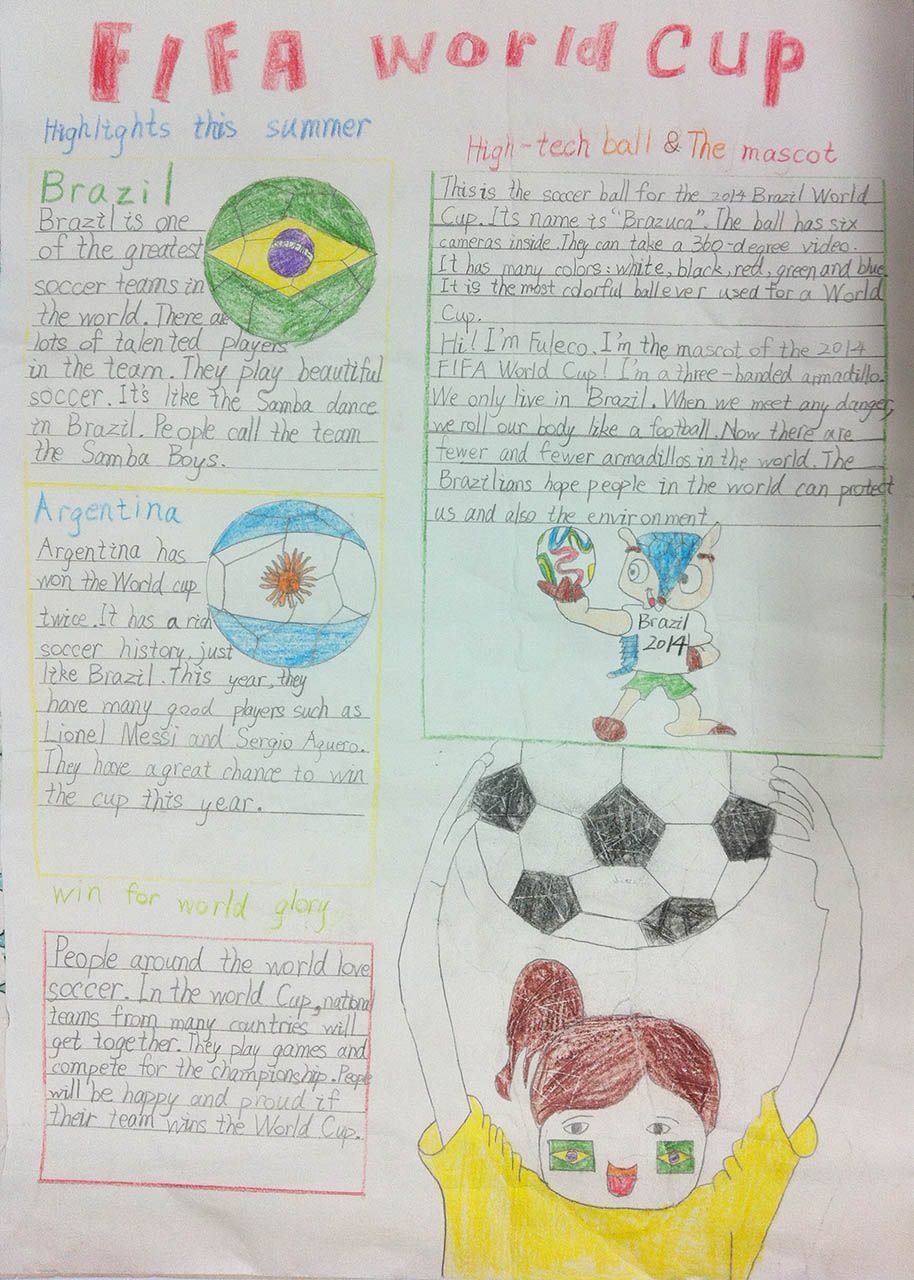 FIFA World Cup
Highlights this summer
Brazil
Brazil is one
of the greatest
soccer teams in
the world. There are
lots of talented players
in the team. They play beautiful
soccer. It's like the Samba dance
in Brazil. People call the team
the Samba Boys.
Argentina
Argentina has
won the World cup
twice. It has a rich
soccer history, just
like Brazil. This year, they
have many good players such as
Lionel Messi and Sergio Aguero.
They have a great chance to win
the cup this year.
win for world glory
People around the world love
soccer. In the world Cup, national
teams from many countries will
get together. They play games and
compete for the championship. People
will be happy and proud if
their team wins the World Cup.
High-tech ball & The mascot
This is the soccer ball for the 2014 Brazil World
Cup. Its name is "Brazuca". The ball has six
cameras inside. They can take a 360-degree video.
It has many colors: white, black, red, green and blue.
It is the most colorful ball ever used for a World
Cup.
Hi! I'm Fuleco. I'm the mascot of the 2014
FIFA World Cup! I'm a three-banded armadillo.
We only live in Brazil. When we meet any danger,
we roll our body like a football. Now there are
fewer and fewer armadillos in the world. The
Brazilians hope people in the world can protect
us and also the environment
Brazil
2014